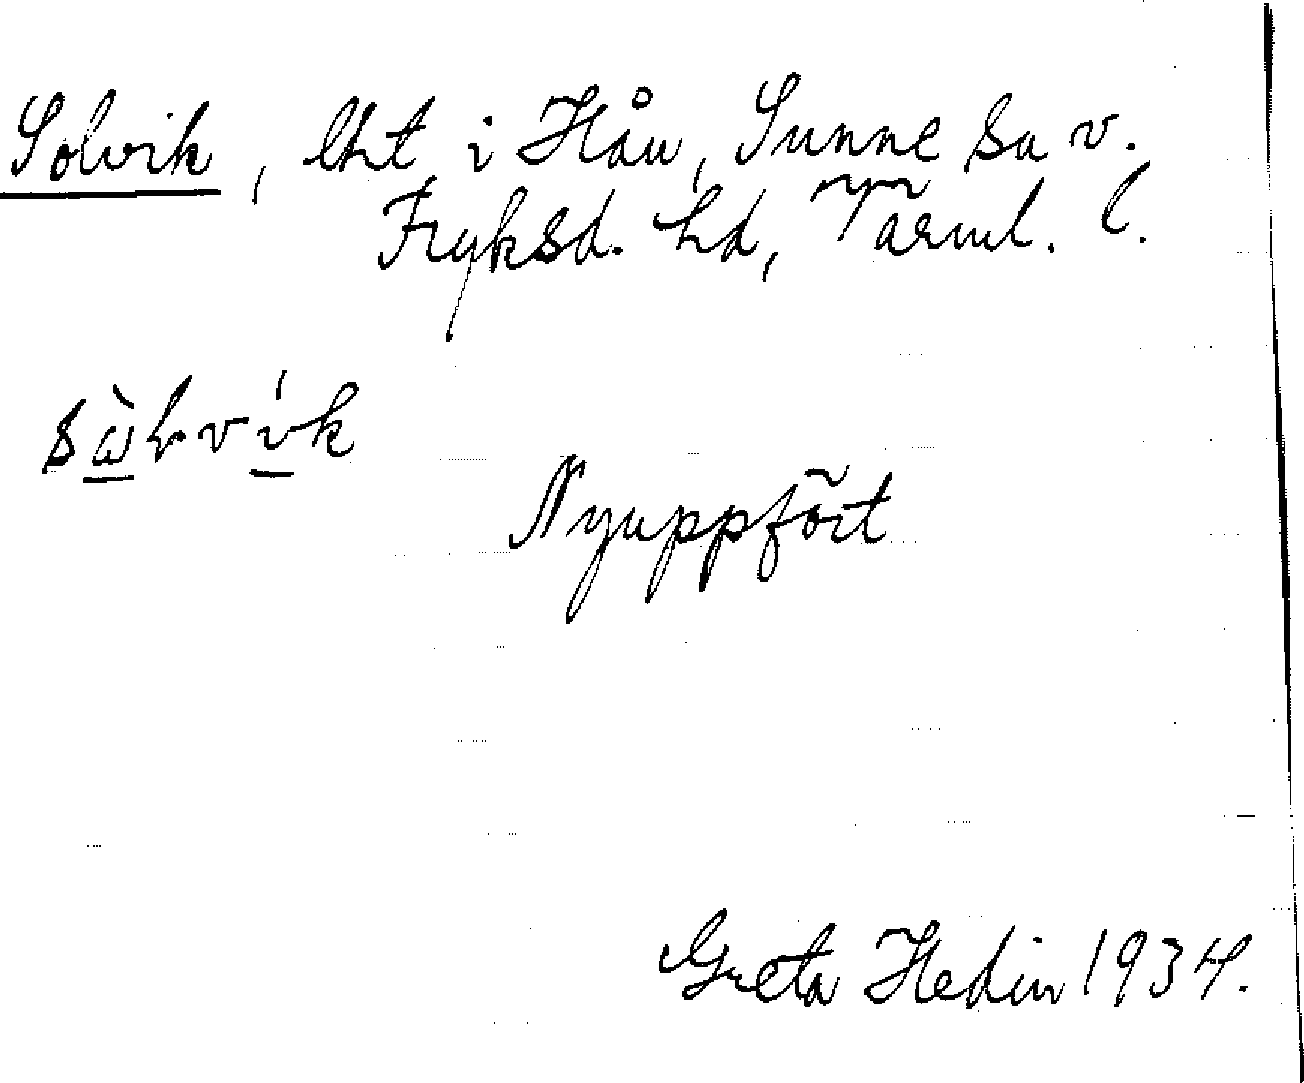 Solvik, lht i Hån, Sunne sn v.
Fryksd. hd, Värml. l.
Nyuppfört
Greta Hedin 1934.